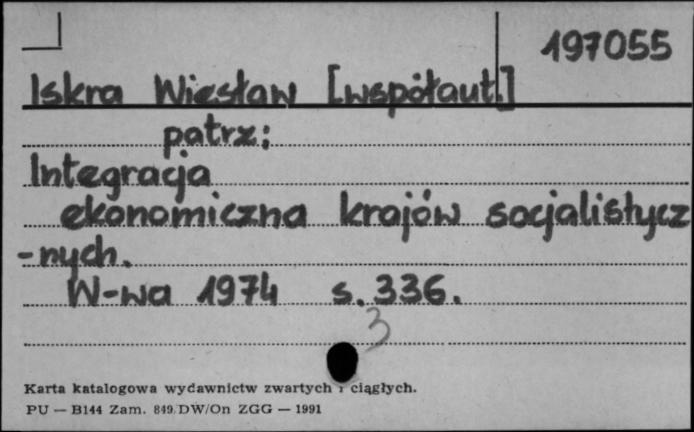 197055
Iskra Wiesław [współaut.]
patrz:
Integracja
ekonomiczna krajów socjalistycz
-nych.
W-wa 1974 s. 336.
3
Karta katalogowa wydawnictw zwartych i ciągłych.
PU — B144 Zam. 849/DW/On ZGG — 1991